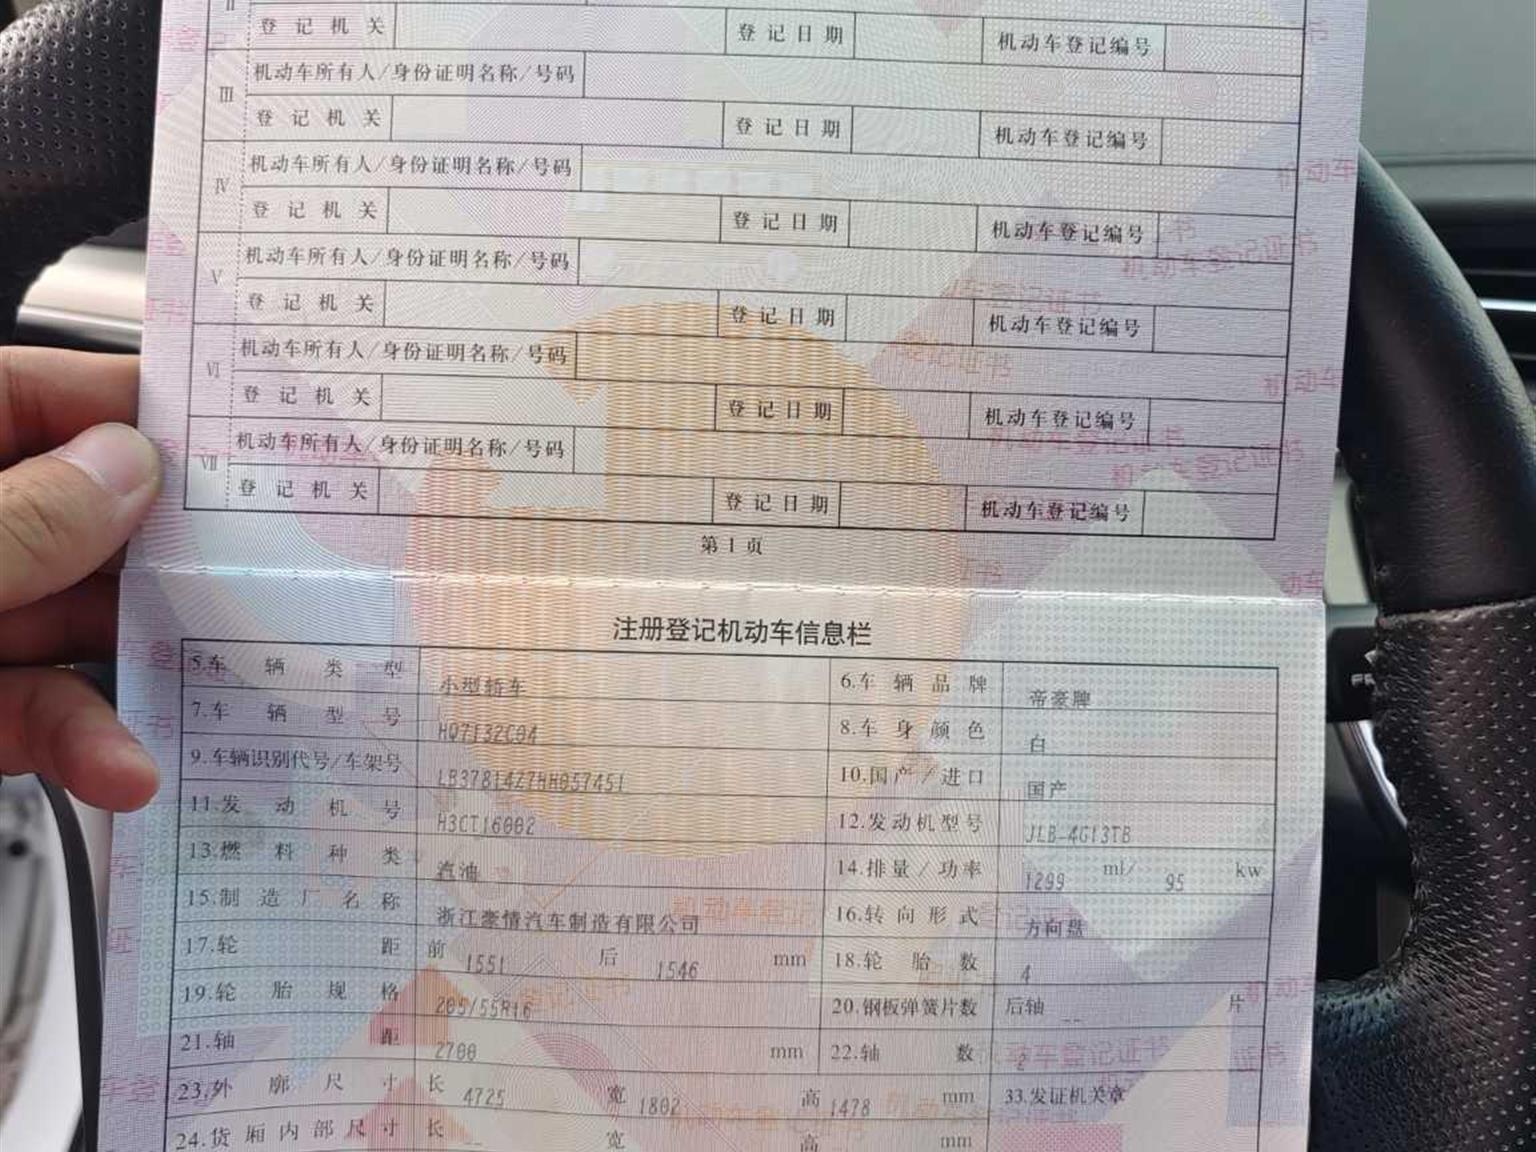 II
登记机关 登记日期 机动车登记编号
机动车所有人/身份证明名称/号码
III
登记机关 登记日期 机动车登记编号
机动车所有人/身份证明名称/号码
IV
登记机关 登记日期 机动车登记编号
机动车所有人/身份证明名称/号码
V
登记机关 登记日期 机动车登记编号
机动车所有人/身份证明名称/号码
VI
登记机关 登记日期 机动车登记编号
机动车所有人/身份证明名称/号码
VII
登记机关 登记日期 机动车登记编号
第1页
注册登记机动车信息栏
5.车辆类型 小型轿车 6.车辆品牌 帝豪牌
7.车辆型号 HQ7132C04 8.车身颜色 白
9.车辆识别代号/车架号 LB37814Z7HH057451 10.国产/进口 国产
11.发动机号 H3CT16002 12.发动机型号 JLB-4G13TB
13.燃料种类 汽油 14.排量/功率 1299 ml/ 95 kw
15.制造厂名称 浙江豪情汽车制造有限公司 16.转向形式 方向盘
17.轮距 前 1551 后 1546 mm 18.轮胎数 4
19.轮胎规格 205/55R16 20.钢板弹簧片数 后轴 -- 片
21.轴距 2700 mm 22.轴数 2
23.外廓尺寸 长 4725 宽 1802 高 1478 mm 33.发证机关章
24.货厢内部尺寸 长 -- 宽 高 mm